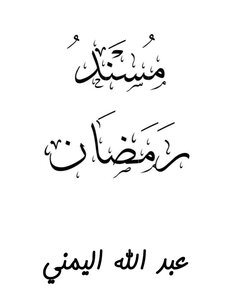 مُسْنَدُ
رَمَضَان
عبد الله اليمني